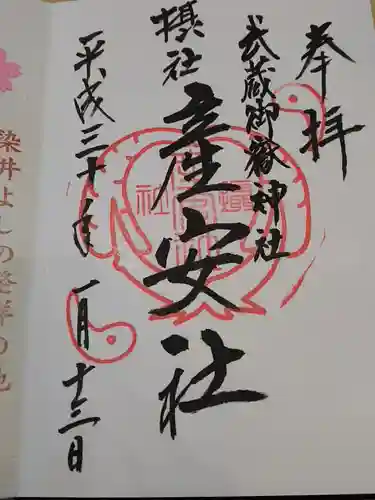 奉拝
武蔵御嶽神社
摂社
産安社
平成三十年 一月十三日
染井よしの発祥の地